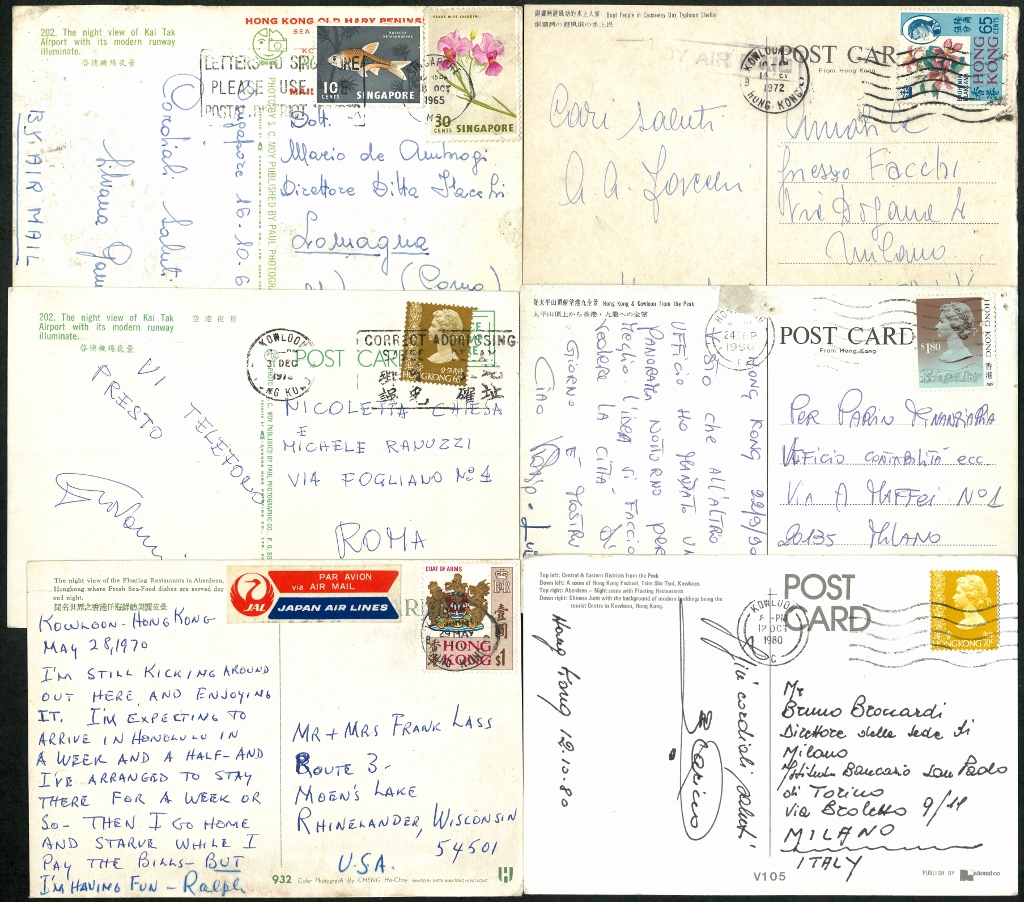 202. The night view of Kai Tak
Airport with its modern runway
illuminate.
啓德機塲夜景
BY AIR MAIL
Silvana
Cordiali Saluti
Singapore 16-10-6
PHOTO BY S. C. MOY PUBLISHED BY PAUL PHOTOGRA
HONG KONG OLD MARY PENINS
SEA
LETTERS TO
PLEASE USE
POSTAL DISTRICT
10 CENTS SINGAPORE
30 CENTS SINGAPORE
OCT
1965
Dott.
Mario de Ambrogi
Direttore Ditta Facchi
Lomagna
(Como)
Boat People in Causeway Bay Typhoon Shelter
POST CARD
From Hong Kong
BY AIR MAIL
KOWLOON
1972
HONG KONG
HONG KONG 65 CENTS
香港
Cari saluti
presso Facchi
Via Dogana 4
Milano
202. The night view of Kai Tak
Airport with its modern runway
illuminate.
啓德機塲夜景
POST CARD
KOWLOON
31 DEC
CORRECT ADDRESSING
HONG KONG
VI
TELEFONO
PRESTO
NICOLETTA CHIESA
E
MICHELE RANUZZI
VIA FOGLIANO Nº 1
ROMA
Hong Kong & Kowloon from the Peak
太平山頂上から香港・九龍への全望
POST CARD
From Hong Kong
24 SEP
1990
HONG KONG 香港
$1.80
HONG KONG 22/9/90
VISTO CHE ALL'ALTRO
UFFICIO HO MANDATO UN
PANORAMA NOTTURNO PER
MEGLIO L'IDEA VI FACCIO
VEDERE LA CITTÀ DI
GIORNO E' MOSTRU
CIAO
PER PARIN FINANZIARIA
UFFICIO CONTABILITÀ ecc.
VIA A MAFFEI Nº 1
20135 MILANO
The night view of the Floating Restaurants in Aberdeen,
Hongkong where Fresh Sea-Food dishes are served day
and night.
聞名世界之香港仔海鮮舫夜景
PAR AVION
via AIR MAIL
JAL
JAPAN AIR LINES
COAT OF ARMS
29 MAY
HONG KONG
壹圓
$1
KOWLOON-HONG KONG
MAY 28, 1970
I'M STILL KICKING AROUND
OUT HERE AND ENJOYING
IT. I'M EXPECTING TO
ARRIVE IN HONOLULU IN
A WEEK AND A HALF-AND
I'VE ARRANGED TO STAY
THERE FOR A WEEK OR
SO- THEN I GO HOME
AND STARVE WHILE I
PAY THE BILLS-BUT
I'M HAVING FUN-Ralph
MR + MRS FRANK LASS
ROUTE 3-
MOEN'S LAKE
RHINELANDER, WISCONSIN
54501
U.S.A.
932 Color Photograph By CHENG Ho-Choy
Top left: Central & Eastern Districts from the Peak
Down left: A scene of Hong Kong Festival, Tsim Sha Tsui, Kowloon.
Top right: Aberdeen - Night scene with Floating Restaurants
Down right: Chinese Junk with the background of modern buildings being the
tourist Centre in Kowloon, Hong Kong.
POST
CARD
KOWLOON
12 OCT
1980
Hong Kong 12.10.80
Più cordiali saluti
Mr
Bruno Broccardi
Direttore della sede di
Milano
Istituto Bancario San Paolo
di Torino
Via Broletto 9/11
MILANO
ITALY
V105
PUBLISH BY National co